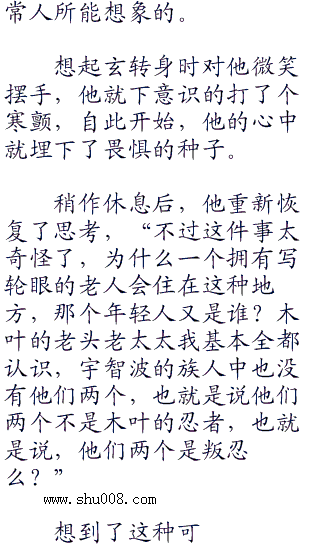 常人所能想象的。
想起玄转身时对他微笑
摆手，他就下意识的打了个
寒颤，自此开始，他的心中
就埋下了畏惧的种子。
稍作休息后，他重新恢
复了思考，“不过这件事太
奇怪了，为什么一个拥有写
轮眼的老人会住在这种地
方，那个年轻人又是谁？木
叶的老头老太太我基本全都
认识，宇智波的族人中也没
有他们两个，也就是说他们
两个不是木叶的忍者，也就
是说，他们两个是叛忍
么？”
www.shu008.com
想到了这种可